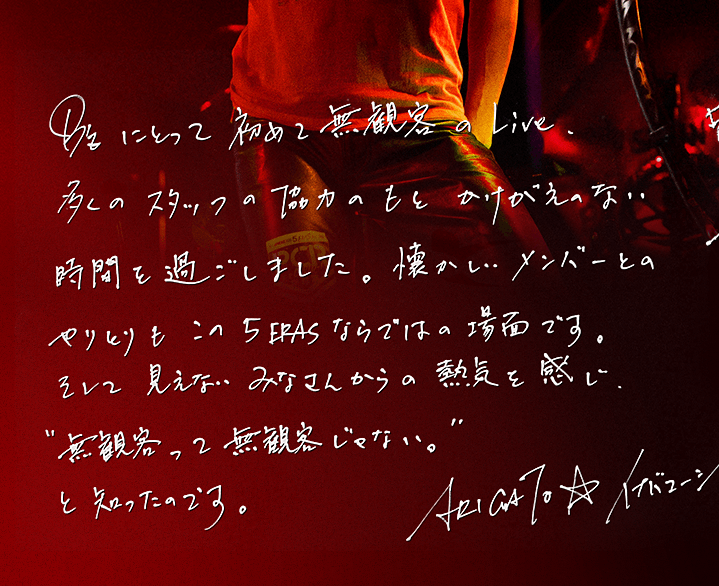 B'zにとって 初めて無観客のLive.
多くのスタッフの協力のもと かけがえのない
時間を過ごしました。懐かしいメンバーとの
やりとりも この5 ERASならではの場面です。
そして 見えない みなさんからの 熱気を感じ、
"無観客って無観客じゃない。"
と知ったのです。
ARIGATO☆イナバコーシ